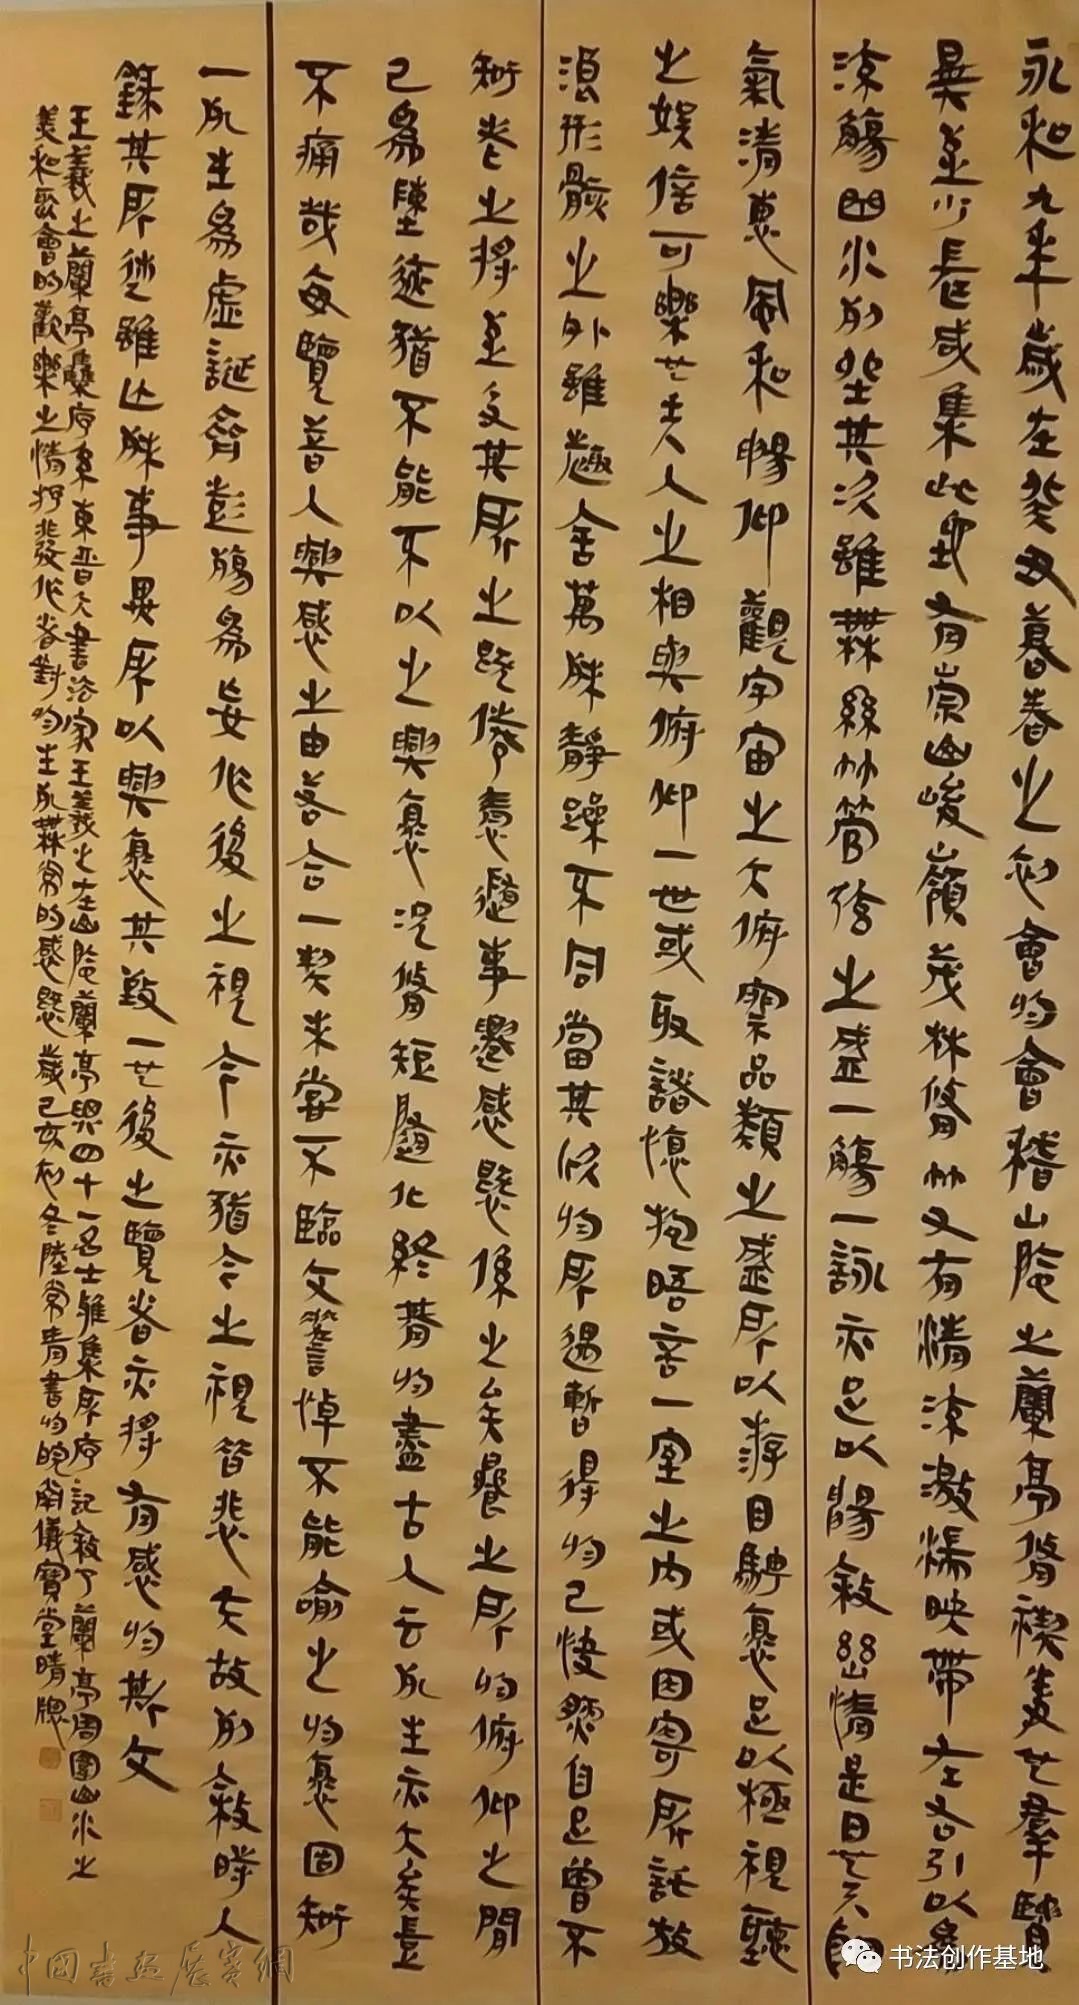 永和九年歲在癸丑暮春之初會於會稽山陰之蘭亭脩禊事也羣賢
畢至少長咸集此地有崇山峻嶺茂林脩竹又有清流激湍映帶左右引以為
流觴曲水列坐其次雖無絲竹管弦之盛一觴一詠亦足以暢敘幽情是日也天朗
氣清惠風和暢仰觀宇宙之大俯察品類之盛所以游目騁懷足以極視聽
之娛信可樂也夫人之相與俯仰一世或取諸懷抱晤言一室之內或因寄所託放
浪形骸之外雖趣舍萬殊靜躁不同當其欣於所遇暫得於己快然自足曾不
知老之將至及其所之既倦情隨事遷感慨係之矣曩之所欣俯仰之間
已為陳迹猶不能不以之興懷況脩短隨化終期於盡古人云死生亦大矣豈
不痛哉每覽昔人興感之由若合一契未嘗不臨文嗟悼不能喻之於懷固知
一死生為虛誕齊彭殤為妄作後之視今亦猶今之視昔悲夫故列敘時人
錄其所述雖世殊事異所以興懷其致一也後之覽者亦將有感於斯文
王羲之蘭亭集序系東晉大書法家王羲之在山陰蘭亭與四十一名士雅集所序記敘了蘭亭周圍山水之
美和聚會的歡樂之情抒發作者對於生死無常的感慨歲己亥初冬陸常青書於晚蘭儀寶堂晴牕
中国书画展赛網
书法创作基地